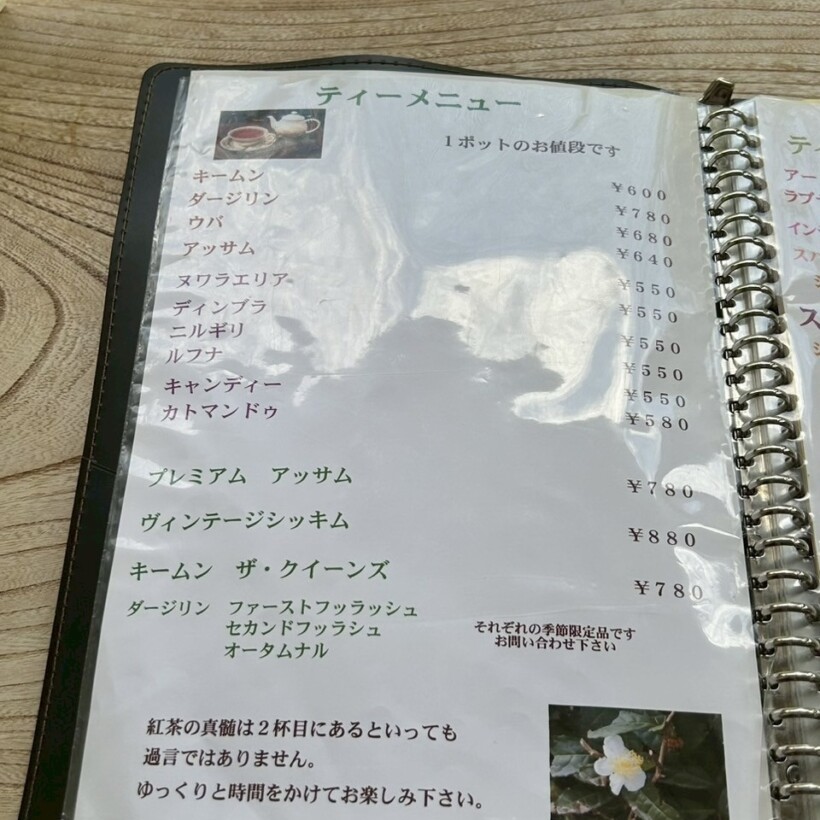 ティーメニュー
1ポットのお値段です
キームン ¥600
ダージリン ¥780
ウバ ¥680
アッサム ¥640
ヌワラエリア ¥550
ディンブラ ¥550
ニルギリ ¥550
ルフナ ¥550
キャンディー ¥550
カトマンドゥ ¥580
プレミアム アッサム ¥780
ヴィンテージシッキム ¥880
キームン ザ・クイーンズ ¥780
ダージリン ファーストフッラッシュ
セカンドフッラシュ
オータムナル
それぞれの季節限定品です
お問い合わせ下さい
紅茶の真髄は2杯目にあるといっても
過言ではありません。
ゆっくりと時間をかけてお楽しみ下さい。
ティ
アー
ラプ
イン
ス